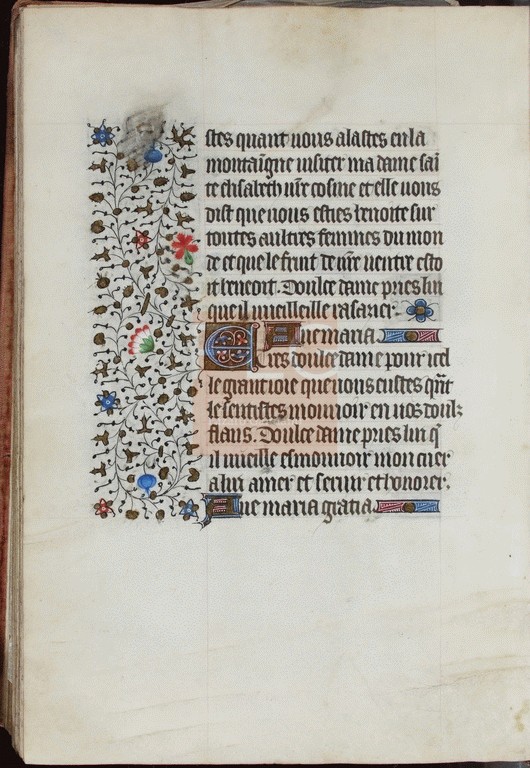 stes quant uous alastes en la
montaigne uisiter ma dame sai
te elisabeth ur̄e cosine et elle uous
dist que uous esties benoite sur
toutes aultres femmes du mon
de et que le fruit de ur̄e uentre esto
it benoit. Doulce dame pries lui
que il mueille
Aue maria.
Tres doulce dame pour icel
le grant ioie que uous eustes qn̄t
le sentistes mouuoir en uos doulz
flans. Doulce dame pries lui q̄
il mueille esmouuoir mon cuer
a lui amer et seruir et honorer.
Aue maria gratia